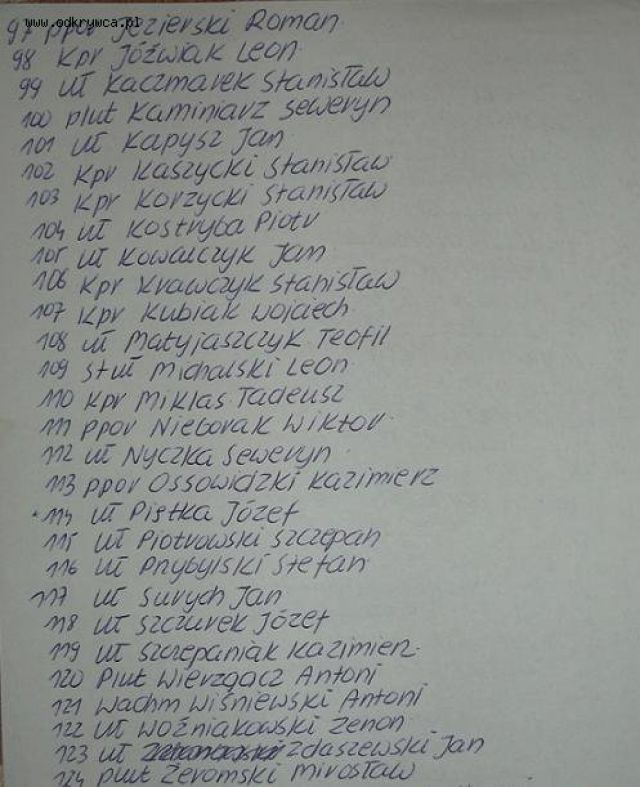 www.odkrywca.pl
97 ppor Jezierski Roman
98 kpr Jóźwiak Leon
99 uł Kaczmarek Stanisław
100 plut Kaminiarz Seweryn
101 uł Kapysz Jan
102 kpr Kaszycki Stanisław
103 kpr Korzycki Stanisław
104 uł Kostryba Piotr
105 uł Kowalczyk Jan
106 kpr Krawczyk Stanisław
107 kpr Kubiak Wojciech
108 uł Matyjaszczyk Teofil
109 st uł Michalski Leon
110 kpr Miklas Tadeusz
111 ppor Nieborak Wiktor
112 uł Nyczka Seweryn
113 ppor Ossowidzki Kazimierz
114 uł Piętka Józef
115 uł Piotrowski Szczepan
116 uł Przybylski Stefan
117 uł Surych Jan
118 uł Szczurek Józef
119 uł Szczepaniak Kazimierz
120 Plut Wierzgacz Antoni
121 Wachm Wiśniewski Antoni
122 uł Woźniakowski Zenon
123 uł Zdaszewski Jan
124 plut Żeromski Mirosław